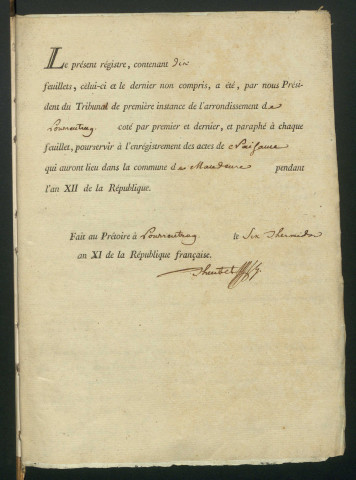 Le présent régistre, contenant dix
feuillets, celui-ci et le dernier non compris, a été, par nous Prési-
dent du Tribunal de première instance de l'arrondissement de
Pourrentruy coté par premier et dernier, et paraphé à chaque
feuillet, pourservir à l'enrégistrement des actes de Naissance
qui auront lieu dans la commune de Mandeure pendant
l'an XII de la République.
Fait au Prétoire à Pourrentruy le Six Thermidor
an XI de la République française.